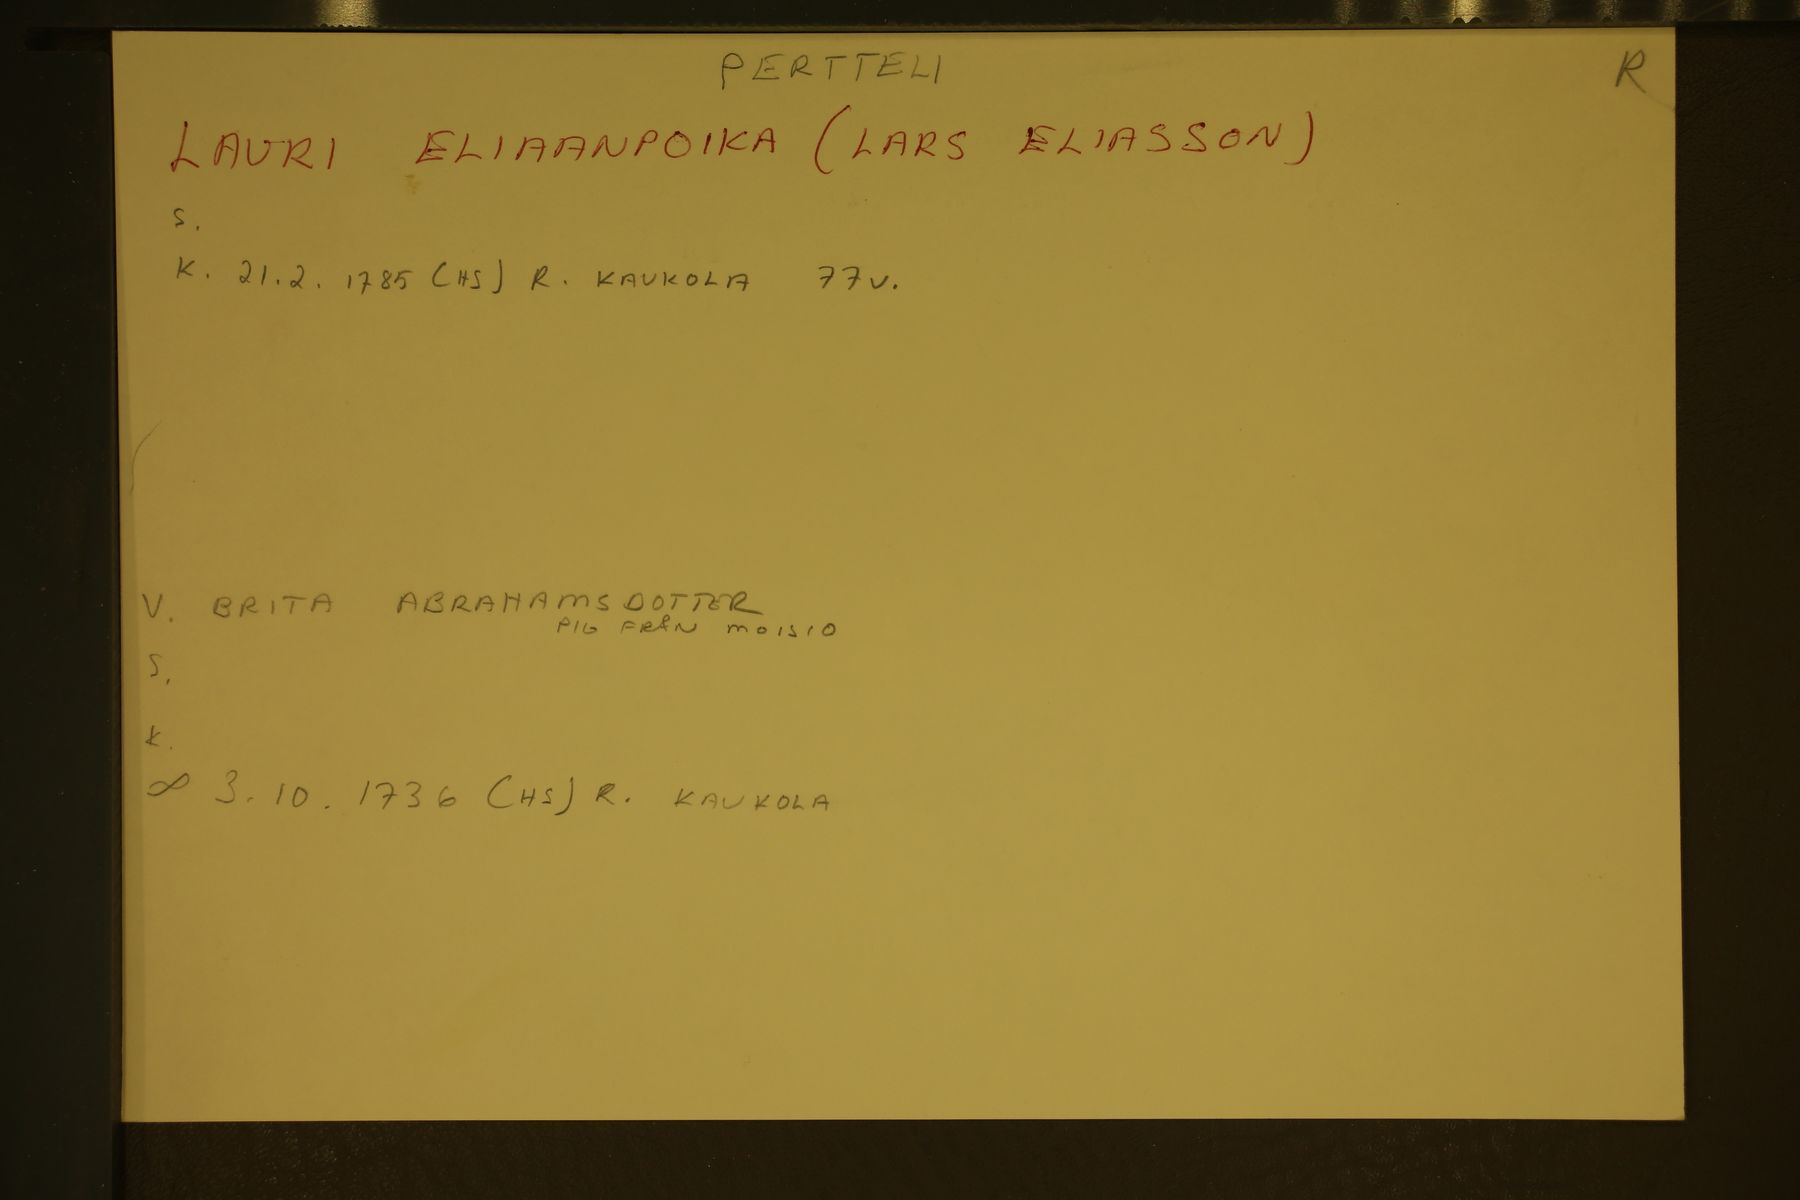 PERTTELI R
LAURI ELIAANPOIKA (LARS ELIASSON)
S.
K. 21.2. 1785 (HS) R. KAUKOLA 77V.
V. BRITA ABRAHAMSDOTTER
PIG FRÅN MOISIO
S.
K.
∞ 3.10.1736 (HS) R. KAUKOLA